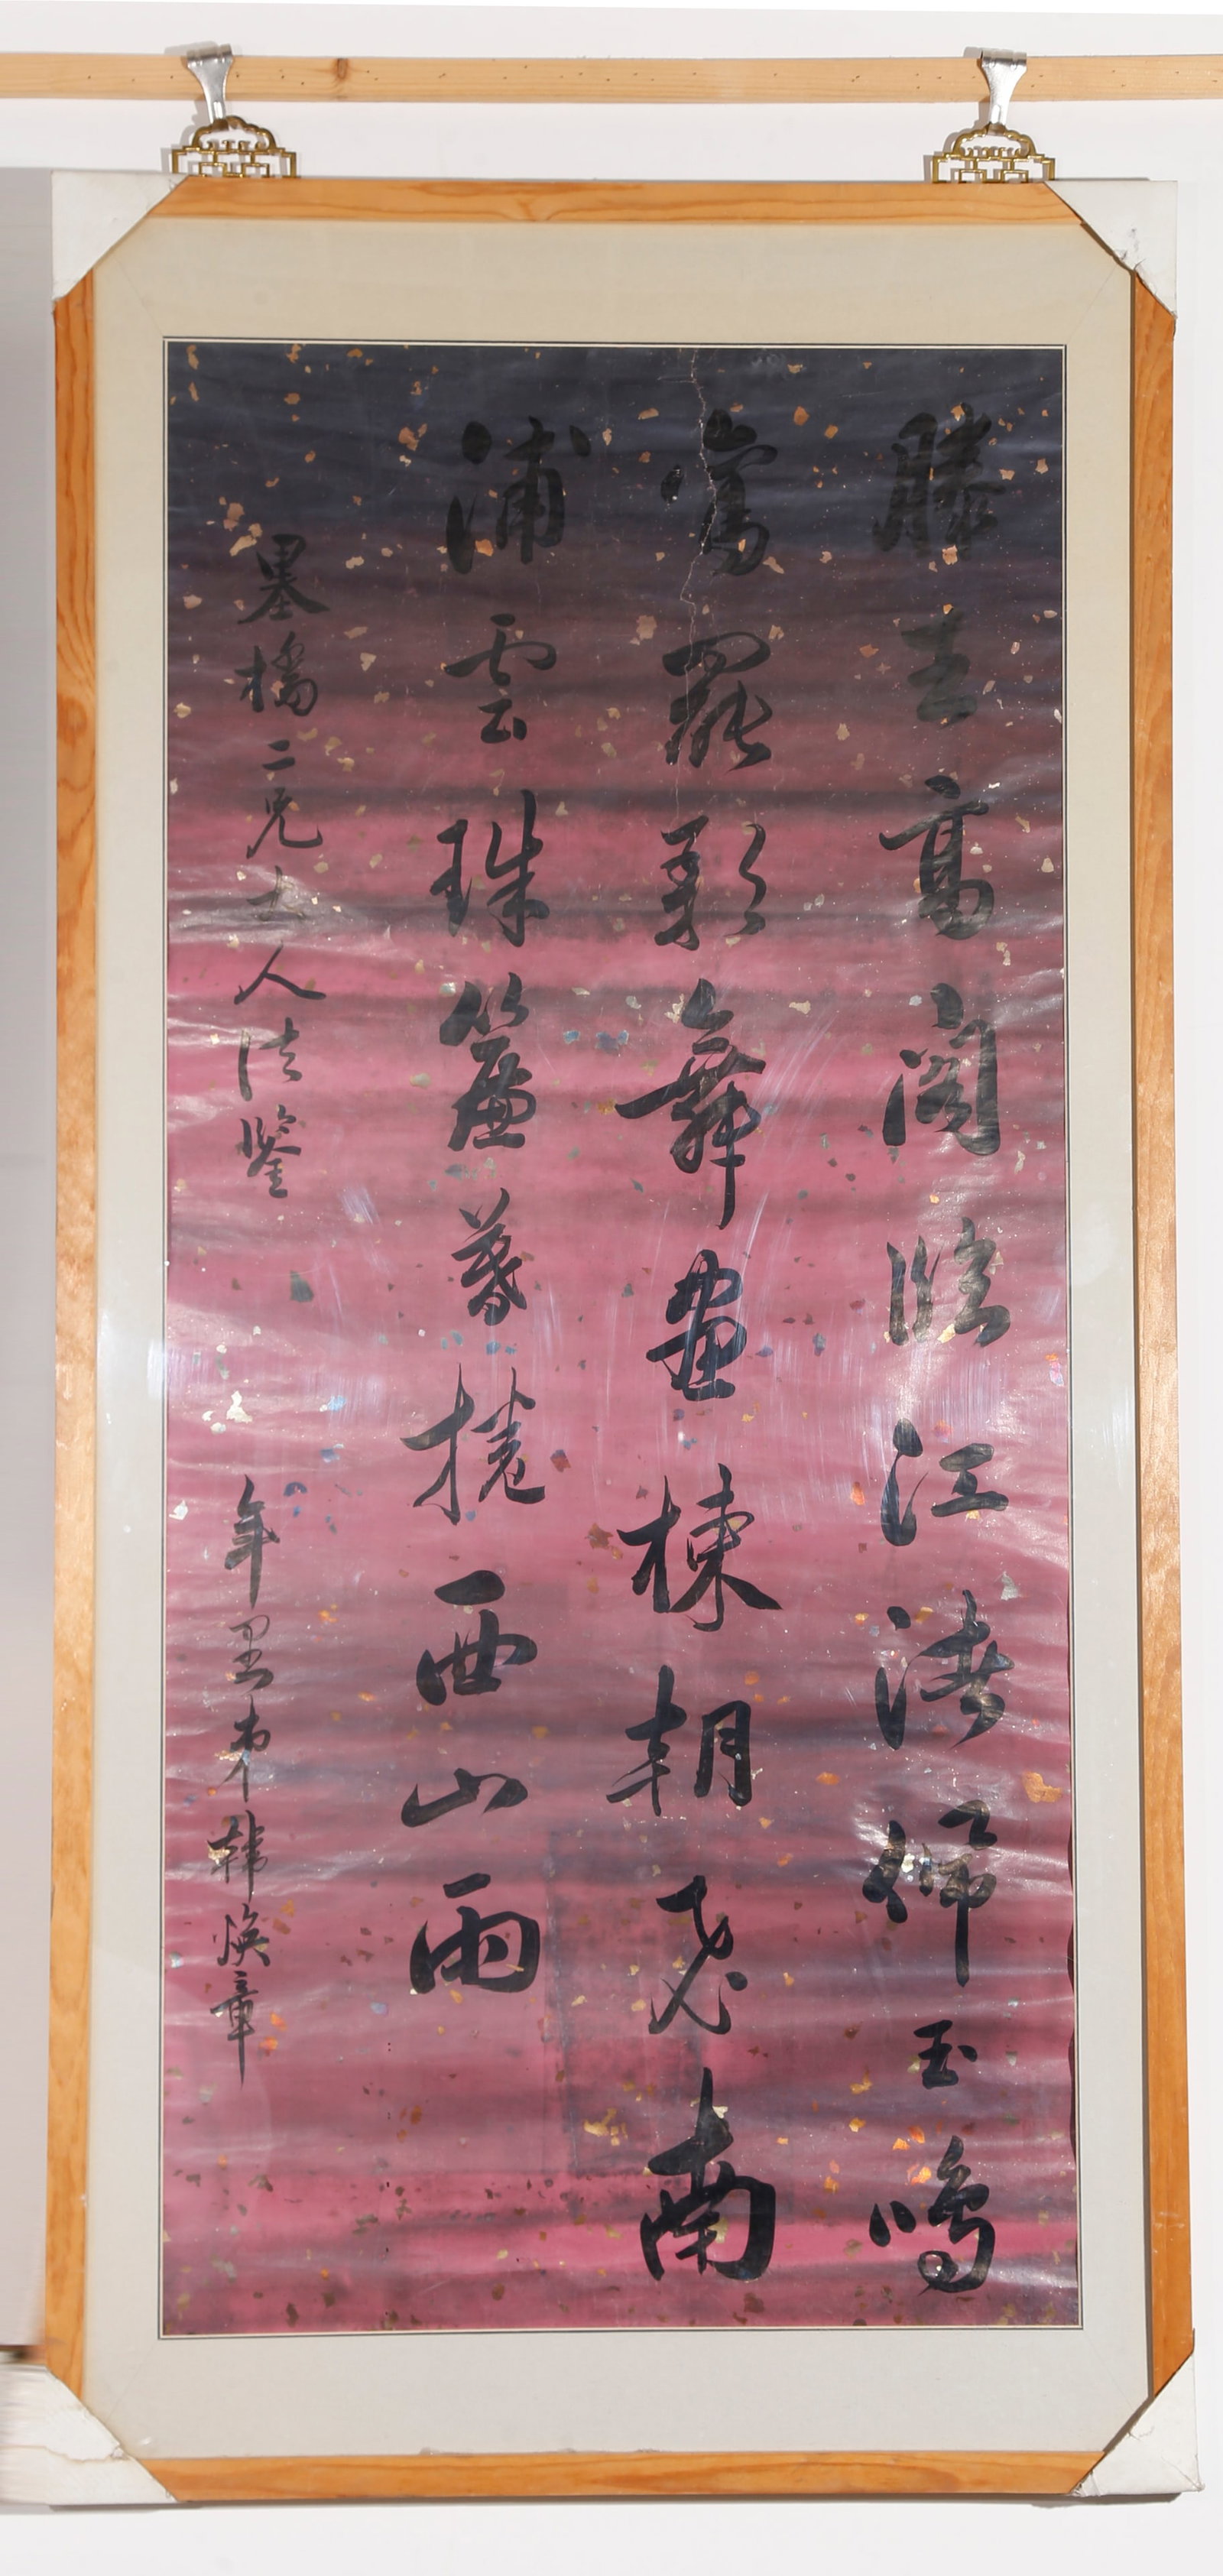 滕王高閣臨江渚佩玉鳴
鸞罷歌舞畫棟朝飛南
浦雲珠簾暮捲西山雨
墨橋二兄大人法鑒
年里弟韓煥章